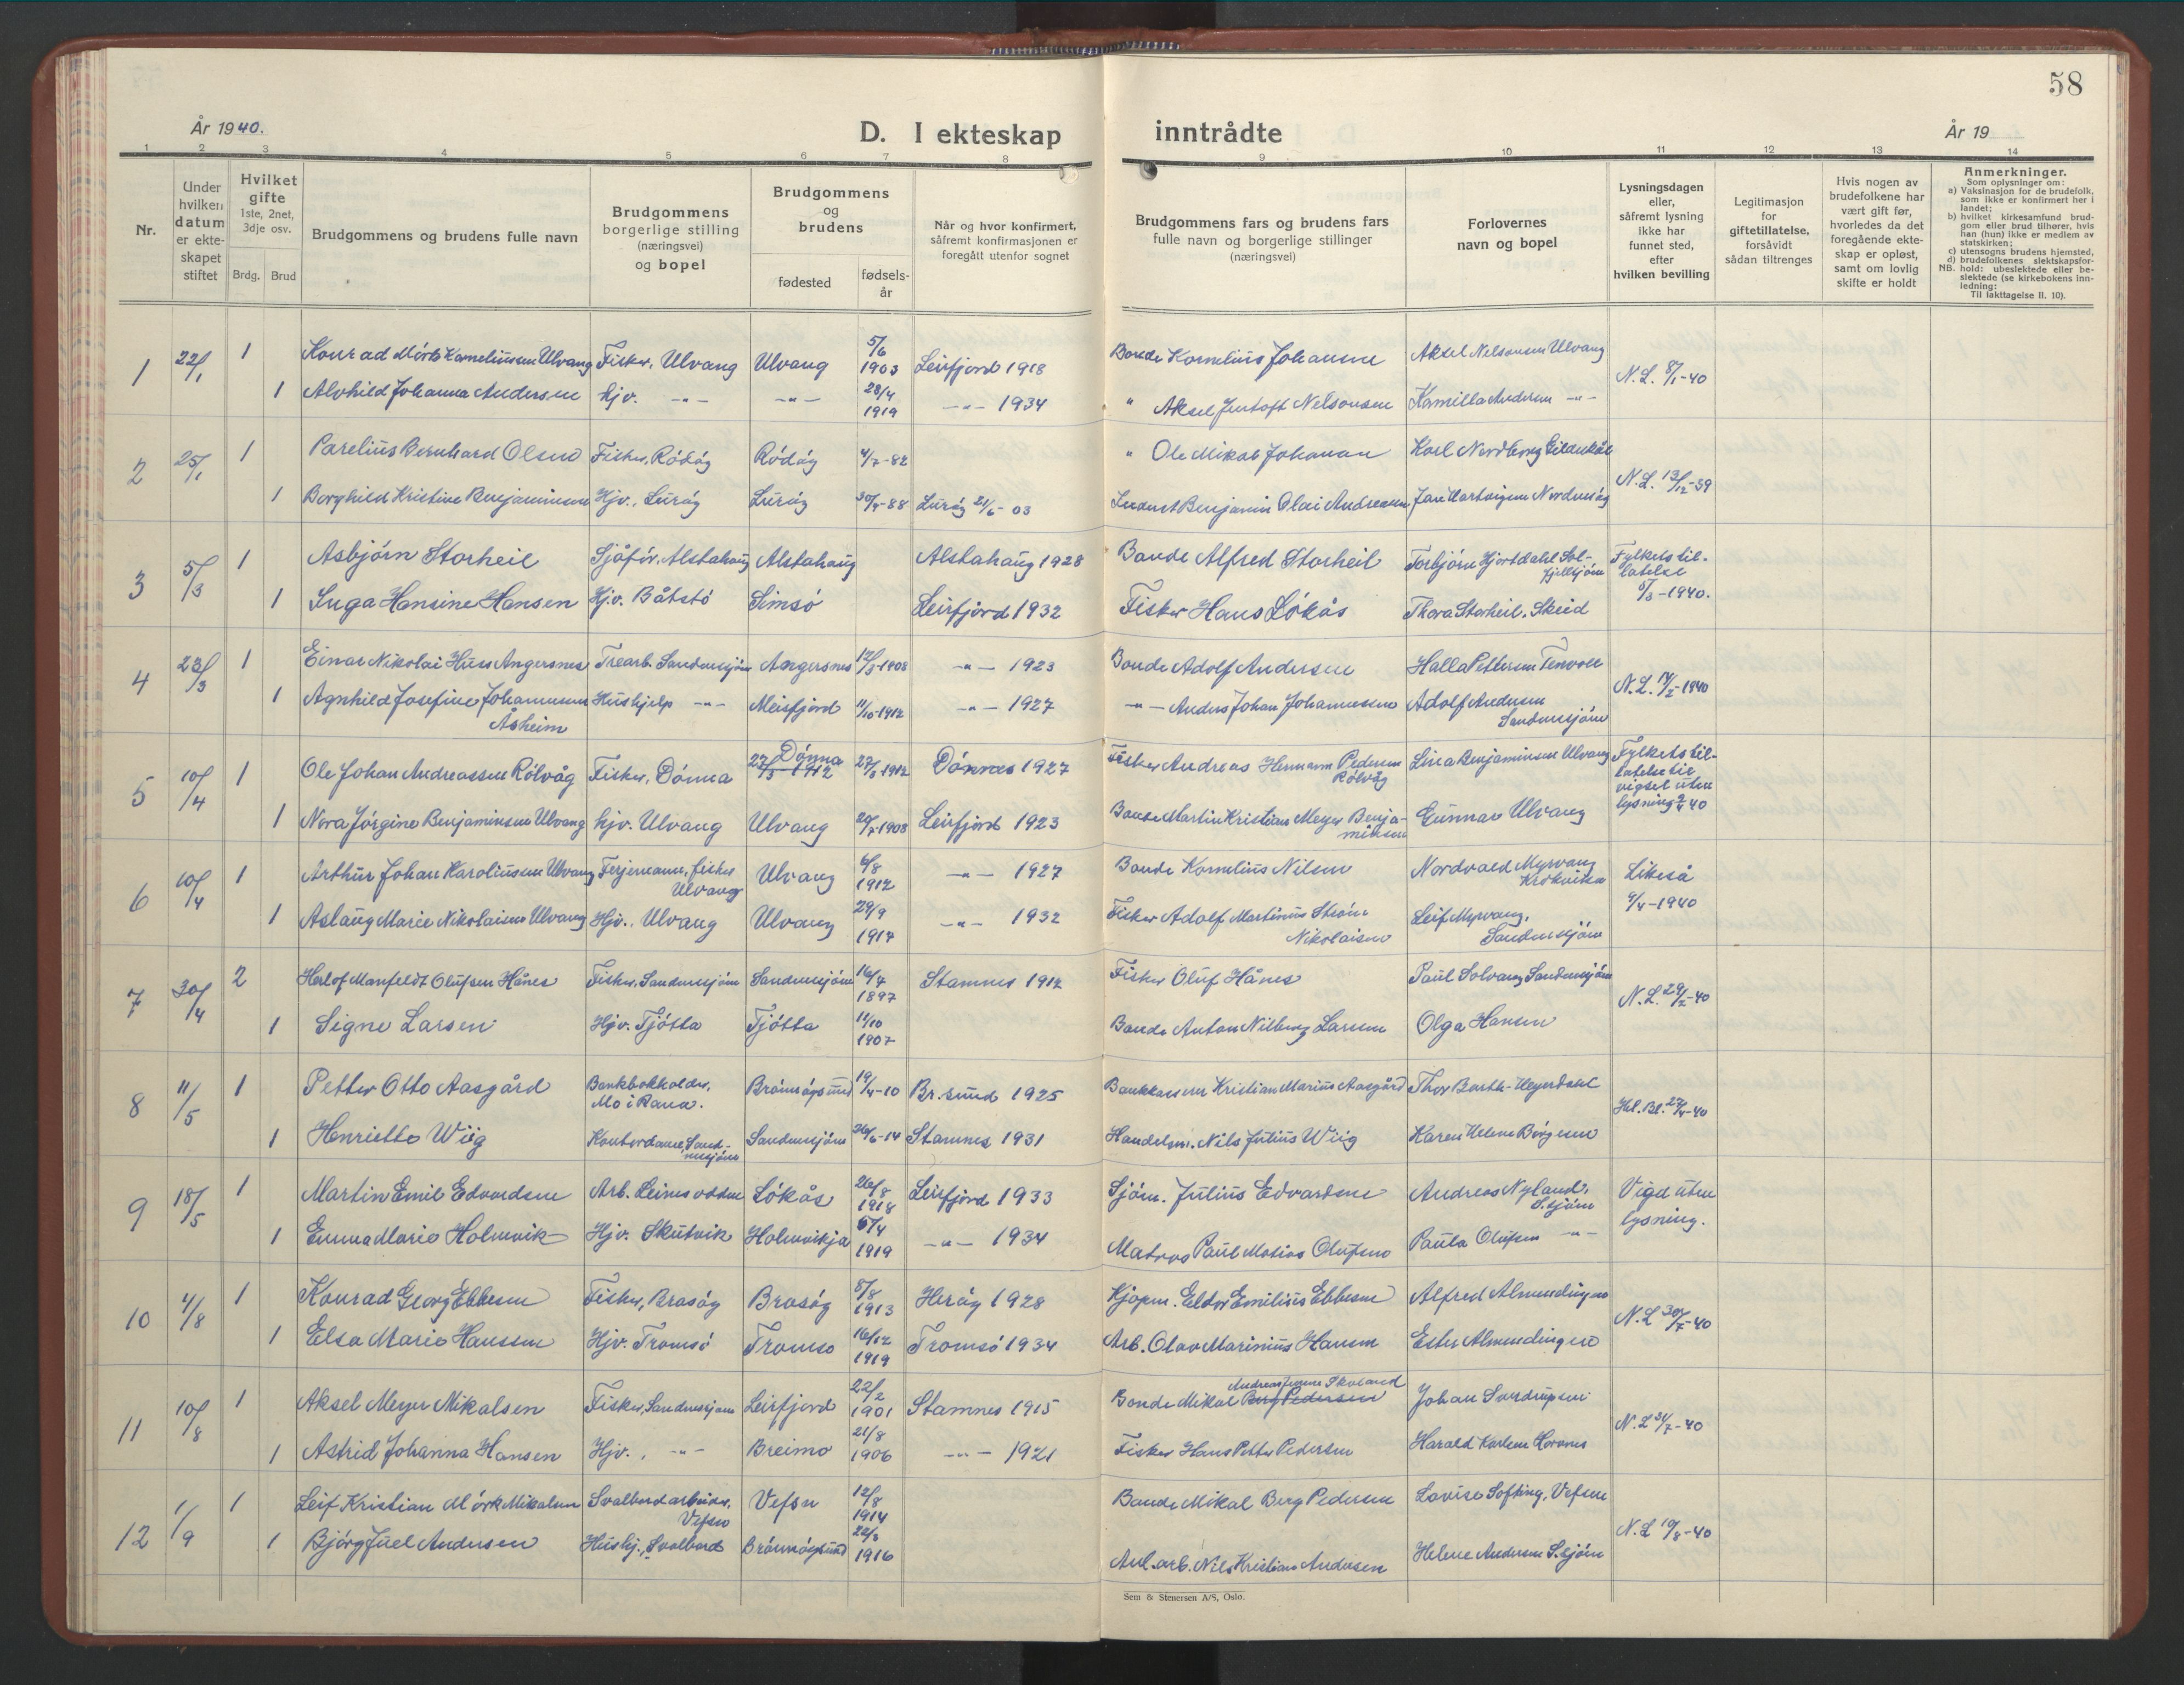 58
År 1940.
D. I ekteskap inntrådte
År 19
1 2 3 4 5 6 7 8 9 10 11 12 13 14
Nr.
Under hvilken datum er ekteskapet stiftet
Hvilket gifte 1ste, 2net, 3dje osv.
Brdg. Brud
Brudgommens og brudens fulle navn
Brudgommens borgerlige stilling (næringsvei) og bopel
Brudgommens og brudens
fødested
fødselsår
Når og hvor konfirmert, såfremt konfirmasjonen er foregått utenfor sognet
Brudgommens fars og brudens fars fulle navn og borgerlige stillinger (næringsvei)
Forlovernes navn og bopel
Lysningsdagen eller, såfremt lysning ikke har funnet sted, efter hvilken bevilling
Legitimasjon for giftetillatelse, forsåvidt sådan tiltrenges
Hvis nogen av brudefolkene har vært gift før, hvorledes da det foregående ekteskap er opløst, samt om lovlig skifte er holdt
Anmerkninger.
Som oplysninger om:
a) Vaksinasjon for de brudefolk, som ikke er konfirmert her i landet;
b) hvilket kirkesamfund brudgom eller brud tilhører, hvis han (hun) ikke er medlem av statskirken;
c) utensogns brudens hjemsted,
d) brudefolkenes slektskapsforhold: ubeslektede eller beslektede (se kirkebokens innledning:
NB.
Til iakttagelse II. 10).
1 22/1 1 Konrad Mörk Korneliussen Ulvang Fisker, Ulvang Ulvang 5/6 1903 Leirfjord 1918 Bonde Kornelius Johansen Aksel Nelsonsen Ulvang N.L. 8/1-40
1 Alvhild Johanna Andersen hjv. -"- -"- 28/4 1919 -"- 1934 " Aksel Jentoft Nelsonsen Kamilla Andersen -"-
2 25/1 1 Parelius Bernhard Olsen Fisker, Rödöy Rödöy 4/7-82 " Ole Mikal Johansen Karl Nordberg Gildeskål N.L. 13/12-39
1 Borghild Kristine Benjaminsen Hjv., Luröy Luröy 30/4-88 Luröy 21/6-03 Benjamin Olai Andreassen Jane Hartvigsen
3 5/3 1 Asbjörn Storheil Sjåför, Alstahaug Alstahaug Alstahaug 1928 Bonde Alfred Storheil Torbjörn Hjortdahl Sol-fjellsjöen Fylkets til-latelse 5/3-1940.
1 Inga Hansine Hansen Hjv. Båtstö Simsö Leirfjord 1932 Fisker Hans Lökås Thora Storheil, Skeid
4 23/3 1 Einar Nikolai Huss Angersnes Trearb. Sandnessjöen Angersnes 12/3-1908 -"- 1923 Bonde Adolf Andersen Halla Pettersen Tenvoll N.L. 14/2-1940
1 Agnhild Josefine Johannessen Åsheim Hushjelp -"- Meisfjord 11/10-1912 -"- 1927 -"- Anders Johan Johannessen Adolf Andersen Sandnessjöen
5 10/4 1 Ole Johan Andreassen Rölvåg Fisker, Dönna Dönna 27/3 1912 27/3-1912 Dönnes 1927 Fisker Andreas Hermann Pedersen Rölvåg Lina Benjaminsen Ulvang Fylkets til-latelse til vigsel uten lysning 9/4 40
1 Nora Jörgine Benjaminsen Ulvang hjv. Ulvang Ulvang 29/7-1908 Leirfjord 1923 Bonde Martin Kristian Meyer Benja-minsen Gunnar Ulvang
6 10/4 1 Arthur Johan Karoliussen Ulvang Ferjemann, fisker Ulvang Ulvang 6/8 1912 -"- 1927 Bonde Kornelius Nilsen Nordvald Myrvang Krokvika Likeså 9/4-1940
1 Aslaug Marie Nikolaisen Ulvang Hjv., Ulvang Ulvang 29/9 1917 -"- 1932 Fisker Adolf Martinus Ströme Nikolaisen Leif Myrvang, Sandnessjöen
7 30/4 2 Herlof Manfeldt Olufsen Hånes Fisker, Sandnessjöen Sandnessjöen 16/7 1897 Stamnes 1912 Fisker Oluf Hånes Paul Solvang Sandnessjöen N.L. 29/2-40
1 Signe Larsen Hjv. Tjötta Tjötta 11/10 1907 Bonde Anton Nilberg Larsen Olga Hansen
8 11/5 1 Petter Otto Aasgård Bankbokholder, Mo i Rana. Brönnöysund 19/4-10 Br.sund 1925 Bankkasserer Kristian Marius Aasgård Thor Barth-Heyerdahl Hel. Bl. 27/4-40
1 Henriette Wiig Kontordame Sand-nessjöen Sandnessjöen 26/6-14 Stamnes 1931 Handelsm. Nils Julius Wiig Karen Helene Börgesen
9 18/5 1 Martin Emil Edvardsen Arb. Leinesodden Lökås 26/8 1918 Leirfjord 1933 Sjöm. Julius Edvardsen Andreas Nyland, S.sjöen Vigd uten lysning.
1 Emma Marie Holmvik Hjv. Skutvik Holmvikja 5/4 1919 -"- 1934 Matros Paul Matias Olufsen Paula Olufsen -"-
10 4/8 1 Konrad Georg Ebbesen Fisker, Brasöy Brasöy 8/8 1913 Heröy 1928 Kjöpm. Eldor Emilius Ebbesen Alfred Almendingen N.L 30/7-40
1 Elsa Marie Hanssen Hjv. Tromsö Tromsö 16/12 1919 Tromsö 1934 Arb. Olav Marinius Hansen Ester Almendingen
11 10/8 1 Aksel Meyer Mikalsen Fisker, Sandnessjöen Leirfjord 22/2 1901 Stamnes 1915 Bonde Mikal Berg Pedersen Johan Sverdrupsen N.L 31/7-40
1 Astrid Johanna Hansen Hjv., -"- Breimo 21/8 1906 -"- 1921 Fisker Hans Petter Pedersen Harald Karlsen
12 1/9 1 Leif Kristian Mörk Mikalsen Svalbardarbeider, Vefsn Vefsn 12/8 1914 Bonde Mikal Berg Pedersen Lovise Softing, Vefsen N.L 19/8-40
1 Björg Juel Andersen Hushj., Svalbard Brönnöysund 22/3 1916 Anl.arb. Nils Kristian Andersen Helene Andersen S.sjöen
Sem & Stenersen A/S, Oslo.